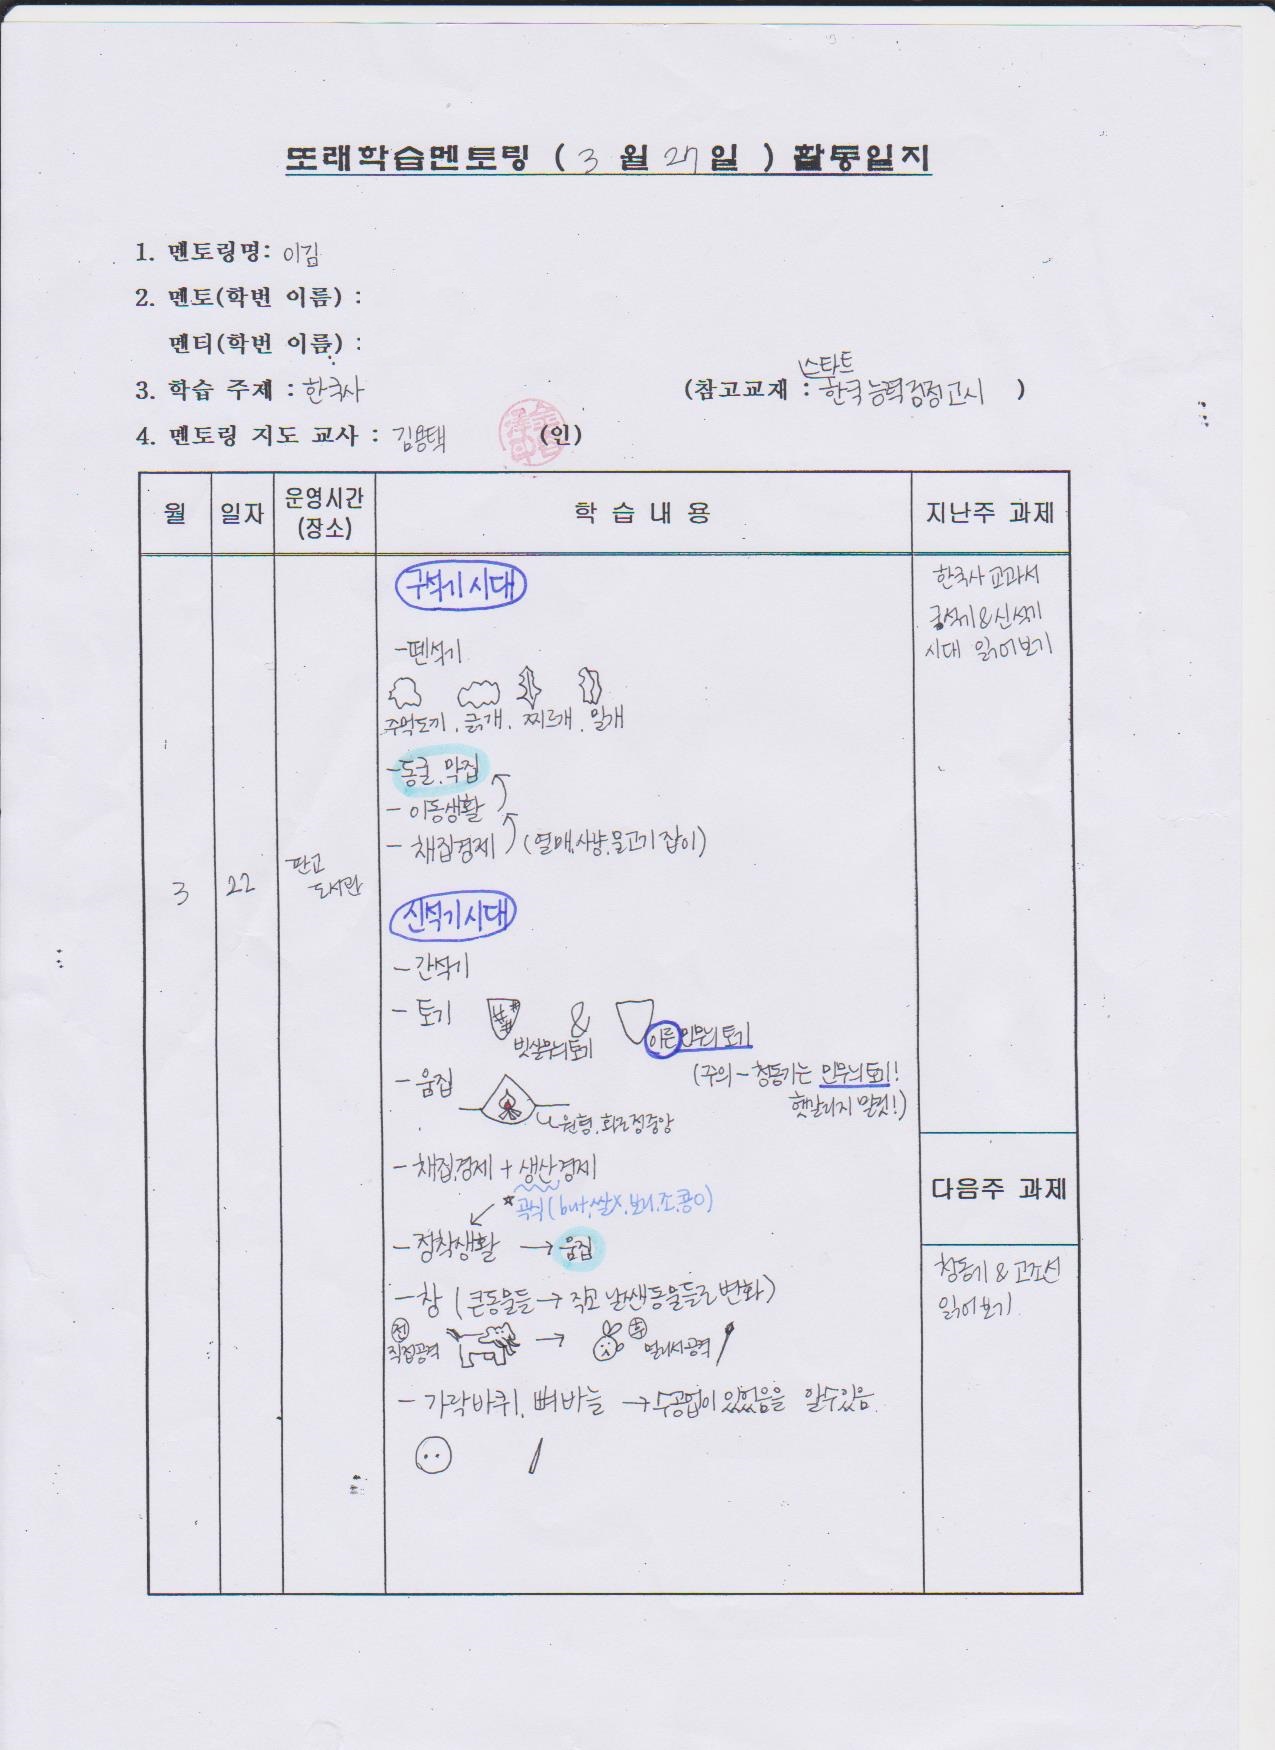 또래학습멘토링 ( 3 월 27 일 ) 활동일지
1. 멘토링명: 이김
2. 멘토(학번 이름) :
멘티(학번 이름) :
3. 학습 주제 : 한국사
(참고교재 : 스타트 한국능력검정고시 )
4. 멘토링 지도 교사 : 김용택 (인)
월 일자 운영시간 (장소) 학 습 내 용 지난주 과제
3 22 판교 도서관
구석기 시대
-뗀석기
주먹도끼, 긁개, 찌르개, 밀개
-동굴, 막집
- 이동생활
- 채집경제 (열매, 사냥, 물고기 잡이)
신석기시대
- 간석기
- 토기 빗살무늬토기 & 이른민무늬토기
(주의 - 청동기는 민무늬토기!
헷갈리지 말것!)
- 움집
원형, 화로정중앙
- 채집경제 + 생산경제
* 곡식 (but, 쌀X, 보리, 조, 콩O)
- 정착생활 → 움집
- 창 (큰동물들 → 작고 날쌘동물들로 변화)
前 직접공격 → 후 멀리서공격
- 가락바퀴, 뼈바늘 → 수공업이 있었음을 알수있음.
한국사 교과서
구석기&신석기
시대 읽어보기
다음주 과제
청동기 & 고조선
읽어보기